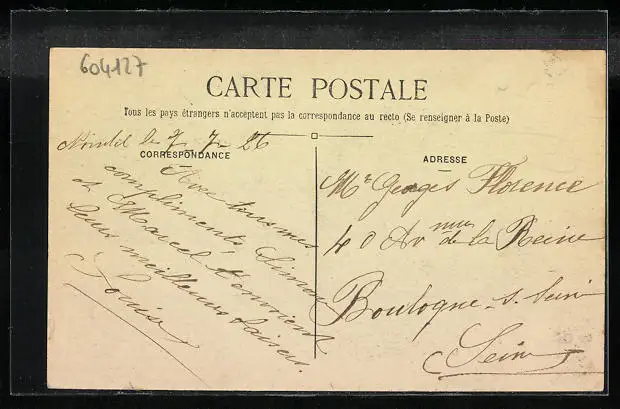 604127
CARTE POSTALE
Tous les pays étrangers n'acceptent pas la correspondance au recto (Se renseigner à la Poste)
le 7-7-26
CORRESPONDANCE
Avec tous mes
compliments, Simon
et Marcel t'envoient
leurs meilleurs baisers.
Louise
ADRESSE
Mr Georges Florence
40 Avnue de la Reine
Boulogne s. Seine
Seine